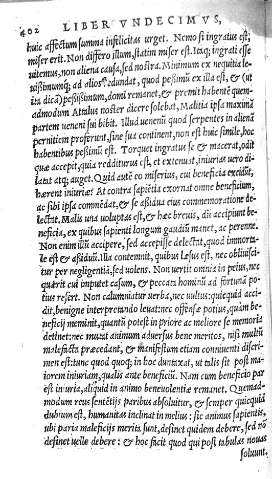 402 LIBER VNDECIMVS,
huic affectum summa infelicitas urget. Nemo si ingratus est,
miser erit. Non differo illum, statim miser est. Itaq; ingrati esse
uitemus, non aliena causa, sed nostra. Minimum ex nequitia le-
uissimumq; ad alios redundat, quod pessimũ ex illa est, & (ut
ita dicã) pessimum, domi remanet, & premit habentẽ quem-
admodum Attalus noster dicere solebat, Malitia ipsa maximã
partem ueneni sui bibit. Illud uenenũ quod serpentes in alienã
perniciem proferunt, sine sua continent, non est huic simile, hoc
habentibus pessimũ est. Torquet ingratus se & macerat, odit
quæ accepit, quia redditurus est, et extenuat, iniurias uero di-
latat atq; auget. Quid autẽ eo miserius, cui beneficia excidũt,
hærent iniuriæ? At contra sapiẽtia exornat omne beneficium,
ac sibi ipsa commẽdat, & se aßidua eius commemoratione de-
lectat. Malis una uoluptas est, & hæc breuis, dũ accipiunt be-
neficia, ex quibus sapienti longum gaudiũ manet, ac perenne.
Non enim illũ accipere, sed accepisse delectat, quod immorta-
le est & aßiduũ. Illa contemnit, quibus læsus est, nec obliuisci-
tur per negligentiã, sed uolens. Non uertit omnia in peius, nec
quærit cui imputet casum, & peccata hominũ ad fortunã po-
tius refert. Non calumniatur uerba, nec uultus: quicquid acci-
dit, benigne interpretando leuat: nec offensæ potius, quàm be-
neficij meminit, quantũ potest in priore ac meliore se memoria
detinet: nec mutat animum aduersus bene meritos, nisi multũ
malefacta præcedant, & manifestum etiam conniuenti discri-
men est: tunc quoq; in hoc duntaxat, ut talis sit post ma-
iorem iniuriam, qualis ante beneficiũ. Nam cum beneficio par
est iniuria, aliquid in animo beneuolentiæ remanet. Quemad-
modum reus sentẽtijs paribus absoluitur, & semper quicquid
dubium est, humanitas inclinat in melius: sic animus sapientis,
ubi paria maleficijs merita sunt, desinet quidem debere, sed nõ
desinet uelle debere: & hoc facit quod qui post tabulas nouas
soluunt.